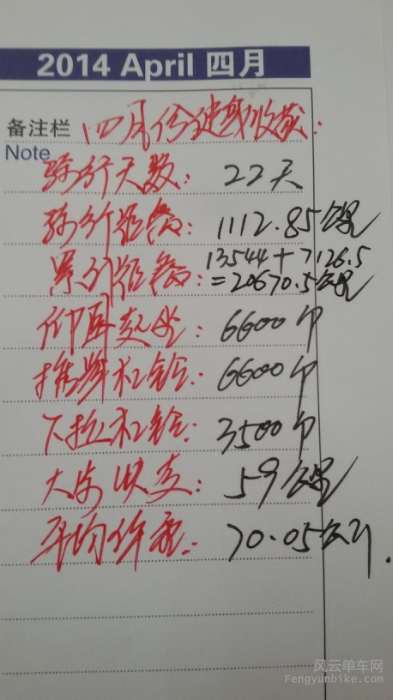 2014 April 四月
备注栏 四月份健身收获：
Note
骑行天数：22天
骑行距离：1112.85公里
累计距离：13544+7126.5
=20670.5公里
仰卧起坐：6600个
推举杠铃：6600个
下拉杠铃：3500个
大步快走：59公里
平均体重：70.05公斤.
风云单车网
Fengyunbike.com